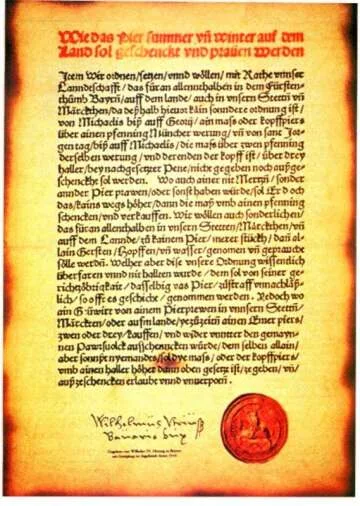 Wie das Pier summer vñ winter auf dem
Land sol geschenckt vnd prauen werden
Item Wir ordnen/setzen/vnnd wöllen/mit Rathe vnnser
Lanndtschafft/das für an allennthalben in dem Fürsten-
thumb Bayrn/auff dem lande/auch in vnsern Stettñ vñ
Märckthen/da deßhalb hieuor kain sondere ordnung ist/
von Michaelis biß auff Georij/ain maß oder kopffpiers
über ainen pfenning Müncher werung/vñ von sant Jor-
gen tag/biß auff Michaelis/die maß über zwen pfenning
derselben werung/vnd derenden der kopff ist/über drey
haller/bey nachgesetzter Pene/nicht gegeben noch außge-
schenckht sol werden. Wo auch ainer nit Mertzñ/sonder
annder Pier prawen/oder sonst haben würde/sol Er doch
das/kains wegs höher/dann die maß vmb ainen pfenning
schencken/vnd verkauffen. Wir wöllen auch sonderlichen/
das für an allenthalben in vnsern Stetten/Märckthen/vñ
auff dem Lannde/zů kainem Pier/merer stückh/dañ al-
lain Gersten/Hopffen/vñ wasser/genomen vñ gepraucht
sölle werdñ. Welher aber dise vnsere Ordnung wissentlich
überfaren vnnd nit hallten wurde/dem sol von seiner ge-
richtzöbrigkait/dasselbig vas Pier/zůstraff vnnachläß-
lich/so offt es geschicht/genommen werden. Jedoch wo
ain Gůwirt von ainem Pierprewen in vnnsern Stettñ/
Märckten/oder aufm lande/yezůzeitñ ainen Emer piers/
zwen oder drey/kauffen/vnd wider vnnter den gemayn-
nen Pawrsuolck außschenncken würde/dem selben allain/
aber sonnst nyemandes/sol dye maß/oder der kopffpiers/
vmb ainen haller höher dann oben gesetzt ist/ze geben/vñ/
außzeschencken erlaubt vnnd vnuerpotñ.